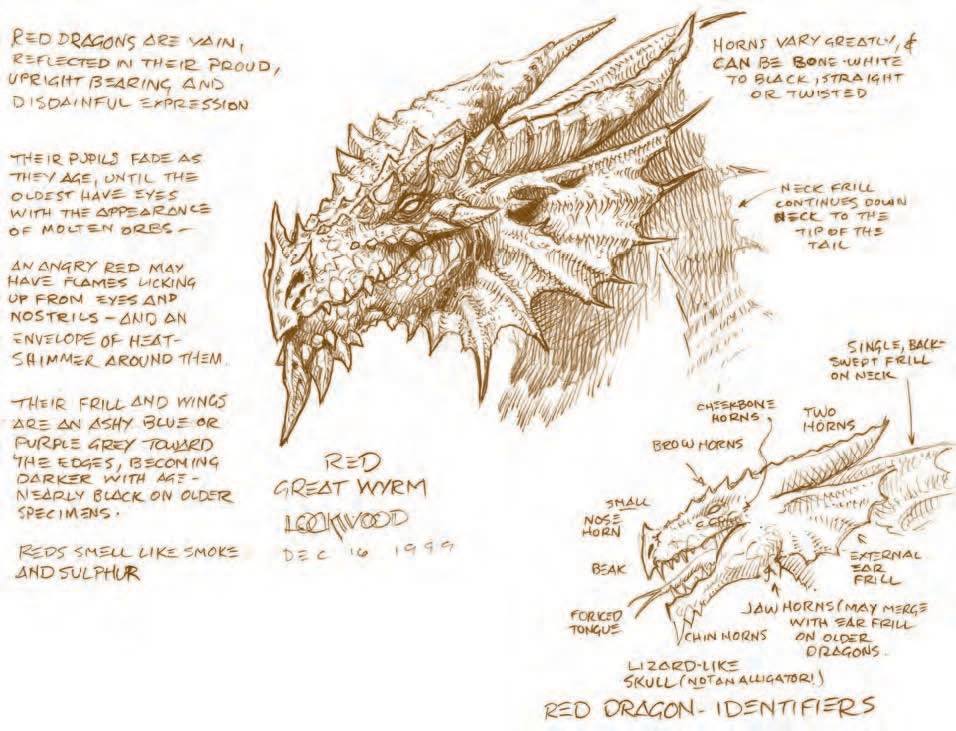 RED DRAGONS ARE VAIN,
REFLECTED IN THEIR PROUD,
UPRIGHT BEARING AND
DISDAINFUL EXPRESSION
THEIR PUPILS FADE AS
THEY AGE, UNTIL THE
OLDEST HAVE EYES
WITH THE APPEARANCE
OF MOLTEN ORBS—
AN ANGRY RED MAY
HAVE FLAMES LICKING
UP FROM EYES AND
NOSTRILS — AND AN
ENVELOPE OF HEAT-
SHIMMER AROUND THEM.
THEIR FRILL AND WINGS
ARE AN ASHY BLUE OR
PURPLE GREY TOWARD
THE EDGES, BECOMING
DARKER WITH AGE -
NEARLY BLACK ON OLDER
SPECIMENS.
REDS SMELL LIKE SMOKE
AND SULPHUR
RED
GREAT WYRM
LOCKWOOD
DEC 16 1999
HORNS VARY GREATLY, &
CAN BE BONE-WHITE
TO BLACK, STRAIGHT
OR TWISTED
NECK FRILL
CONTINUES DOWN
NECK TO THE
TIP OF THE
TAIL
SINGLE, BACK-
SWEPT FRILL
ON NECK
CHEEKBONE
HORNS
TWO
HORNS
BROW HORNS
SMALL
NOSE
HORN
BEAK
FORKED
TONGUE
CHIN HORNS
EXTERNAL
EAR
FRILL
JAW HORNS (MAY MERGE
WITH EAR FRILL
ON OLDER
DRAGONS.
LIZARD-LIKE
SKULL (NOT AN ALLIGATOR!)
RED DRAGON - IDENTIFIERS